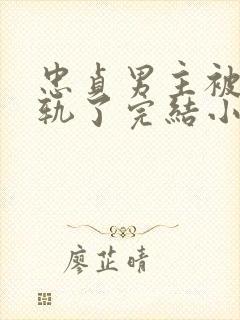 忠貞男主被
軌了完結小
廖芷晴